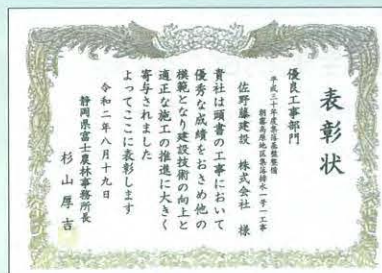 表彰状
優良工事部門
平成三十年度集落基盤整備
朝霧高原地区集落排水一号一工事
佐野藤建設　株式会社　様
貴社は頭書の工事において
優秀な成績をおさめ他の
模範となり建設技術の向上と
適正な施工の推進に大きく
寄与されました
よってここに表彰します
令和二年八月十九日
静岡県富士農林事務所長
杉山厚吉